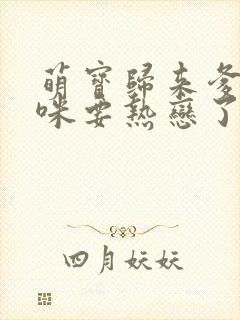 萌寶歸来爹
咪要熱戀了
四月妖妖